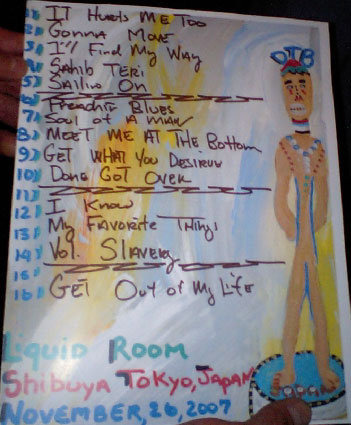 1) IT HURTS ME TOO
2) GONNA MOVE
3) I'll Find My Way
4) SAHIB TERI
5) SAiliN ON
6) PREACHIN BLUES
7) SOUL OF A MAN
8) MEET ME AT THE BOTTOM
9) GET WHAT YOU DESIREUV
10) DONE GOT OVER
11)
12) I KNOW
13) My FAVORiTE THINgS
14) VOL. SlAVERY
15)
16) GET OUT OF My LiFE
DTB
LIQUID ROOM
SHIBUYA TOKYO, JAPAN
NOVEMBER, 26, 2007